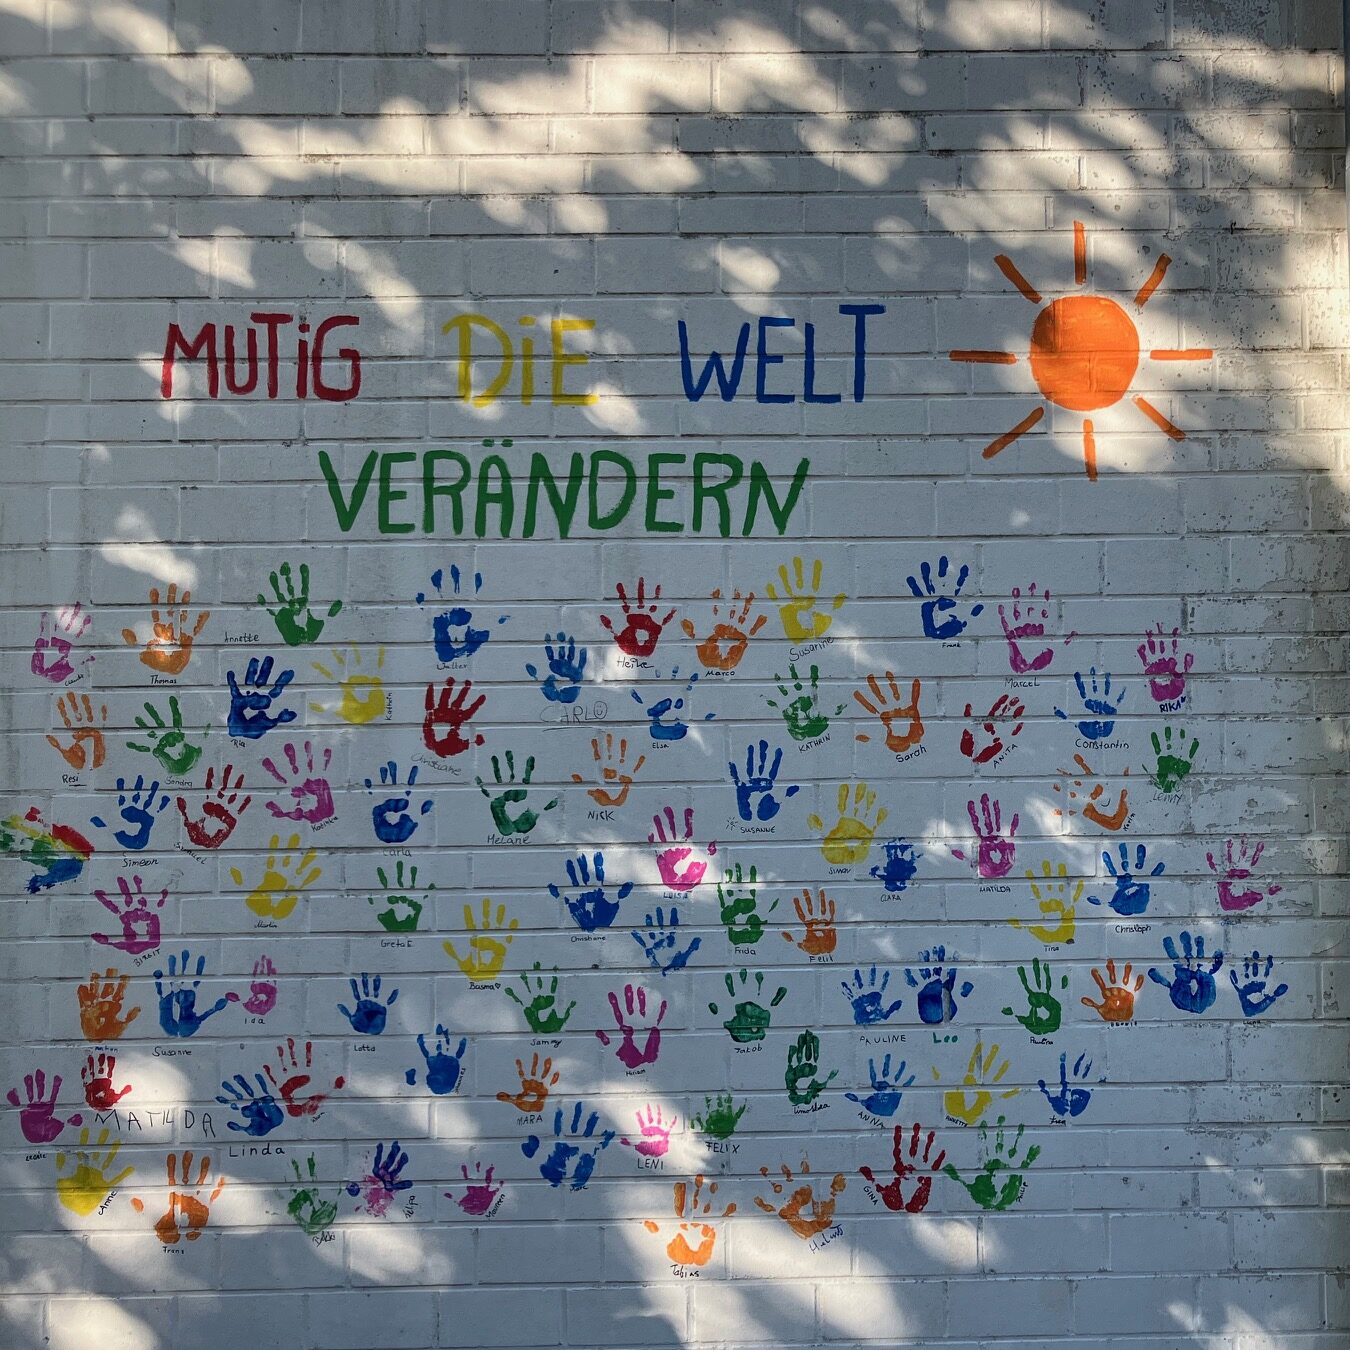 MUTiG DiE WELT
VERÄNDERN
Annette
Walter
Heike
Marco
Susanne
Frank
Thomas
Marcel
RIKA
CARLO
Ria
Kathrin
Elsa
KATHRIN
Sarah
ANITA
Constantin
Resi
Sandra
Christiane
LENNY
NICK
SUSANNE
Melanie
Carla
Simeon
Samuel
SIMON
CLARA
MATILDA
LUISA
Martin
Greta E
Christiane
Frida
Felix
Tina
Christoph
BIRGIT
Basma♡
Ida
Susanne
Lotta
Sammy
Miriam
Jakob
PAULINE
Leo
Paulina
MATILDA
MARA
Timothea
ANNA
Linda
LENI
FELIX
Anne
Franz
GINA
Tobias